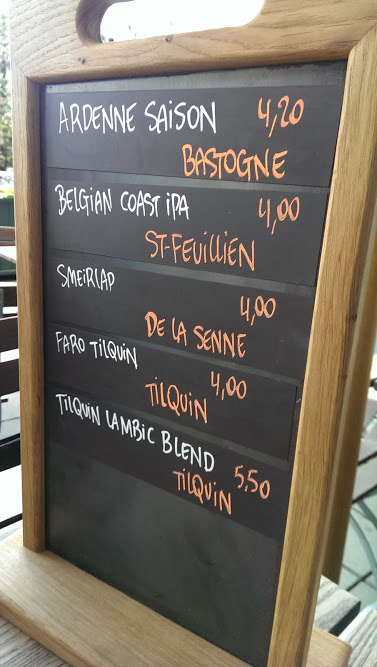 ARDENNE SAISON 4,20
BASTOGNE
BELGIAN COAST iPA 4,00
ST-FEUILLIEN
SMEIRLAP
4,00
DE LA SENNE
FARO TiLQUiN
4,00
TiLQUiN
TiLQUiN LAMBiC BLEND
5,50
TiLQUiN